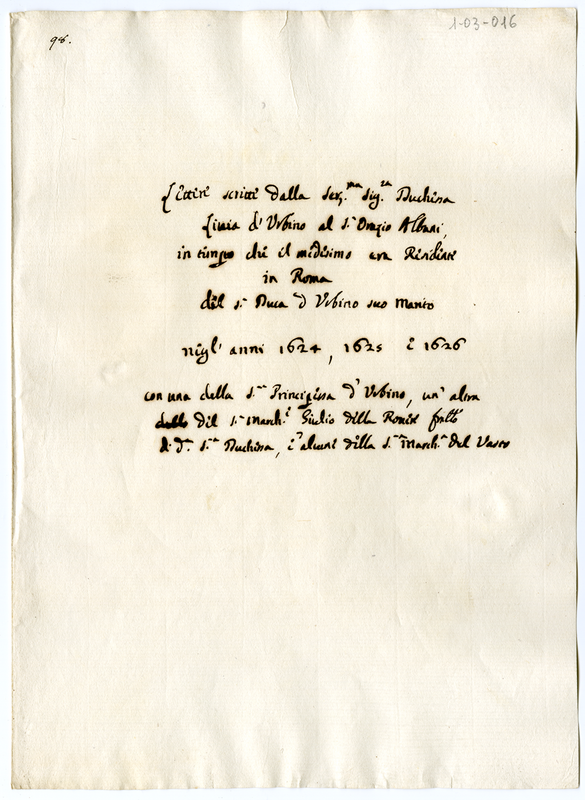 1-03-016
98.
Lettere scritte dalla Ser.ma Sig.ra Duchessa
Livia d'Urbino al S.r Orazio Albani,
in tempo che il medesimo era Residente
in Roma
del S.r Duca d'Urbino suo Marito
negl'anni 1624, 1625 e 1626
con una della S.ra Principessa d'Urbino, un'altra
del S.r March.e Giulio della Rovere fratello
di d.a S.ra Duchessa, e alcuni della S.ra March.a del Vasto